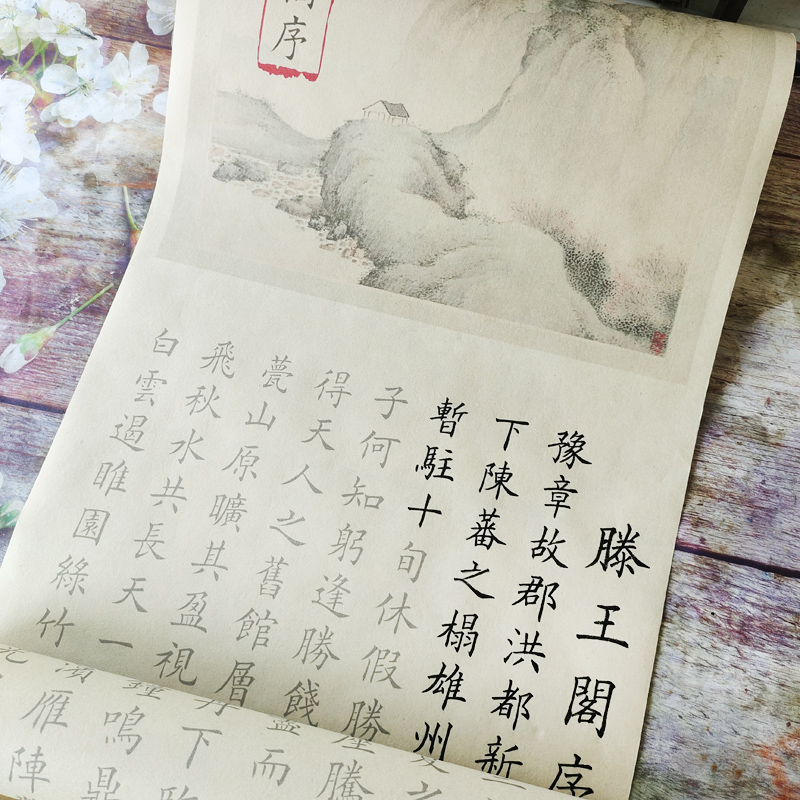 序
滕王閣序
豫章故郡洪都新
下陳蕃之榻雄州
暫駐十旬休假勝
子何知躬逢勝餞
得天人之舊館層
甍山原曠其盈視
飛秋水共長天一
白雲遏睢園綠竹
之
騰
而
下
鳴鼎
雁陣